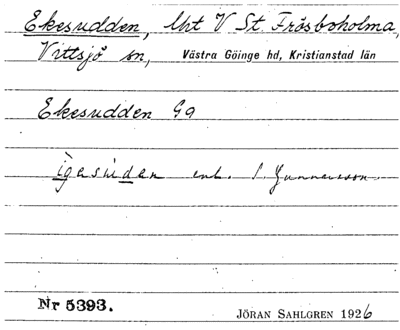 Ekesudden, lht V St. Frösboholma,
Vittsjö sn, Västra Göinge hd, Kristianstad län
Ekesudden Ga
enl. Gunnarsson
Nr 5393. JÖRAN SAHLGREN 1926